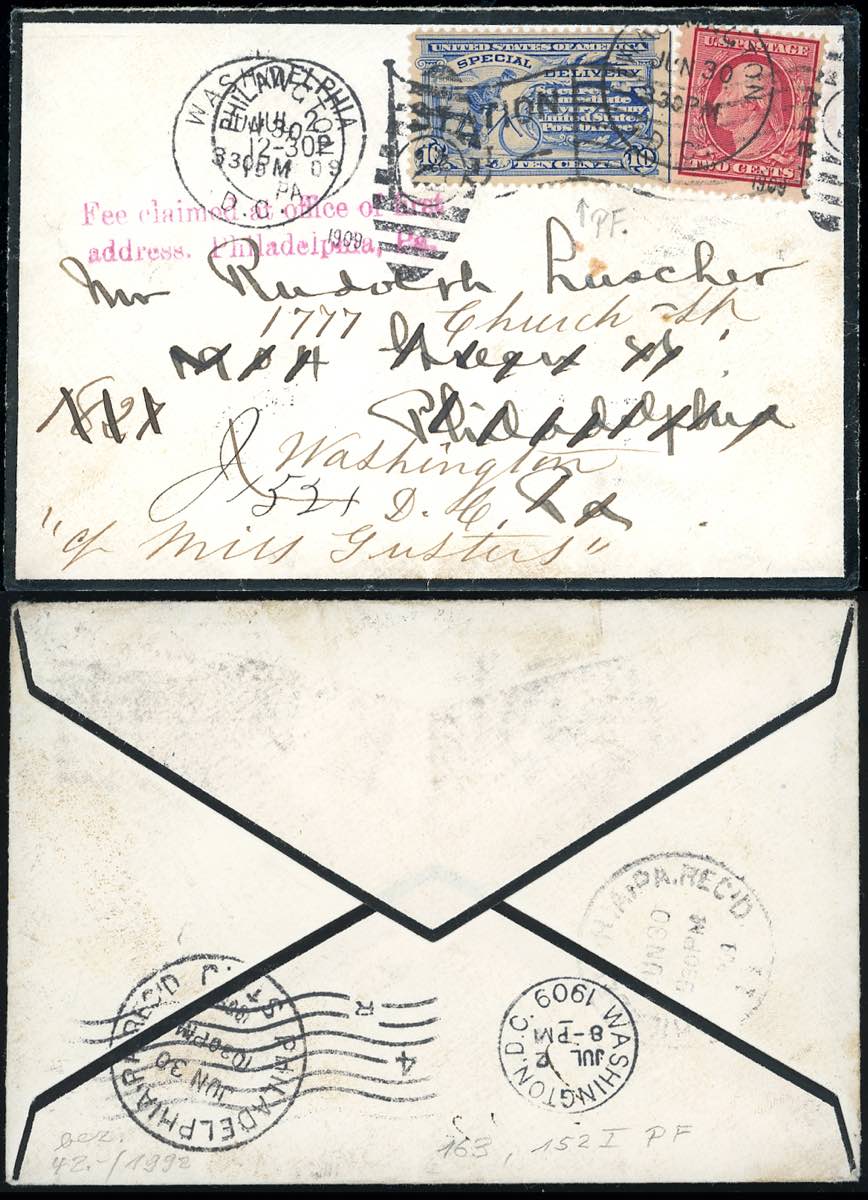 UNITED STATES OF AMERICA
SPECIAL DELIVERY
TEN CENTS
10 10
U.S. POSTAGE
TWO CENTS
WASHINGTON
JUN 30
3 30 PM
D.C.
1909
PHILADELPHIA
JUL 2
12-30P
09
PA
WASHINGTON
JUN 30
3 30 PM
D.C.
1909
STATION
Fee claimed at office of first
address. Philadelphia, Pa.
↑ PF.
Mr Rudolph Luscher
1777 Church St
Philadelphia
Washington
521 D. C. Pa
"c/o Miss Gusters"
PHILA, PA. REC'D
JUN 30
9 30 PM
WASHINGTON, D.C. 1909
JUL 2
8-PM
PHILADELPHIA, PA. REC'D
JUN 30
10 30 PM
R
4
bez.
42.-/1992
163, 152 I PF